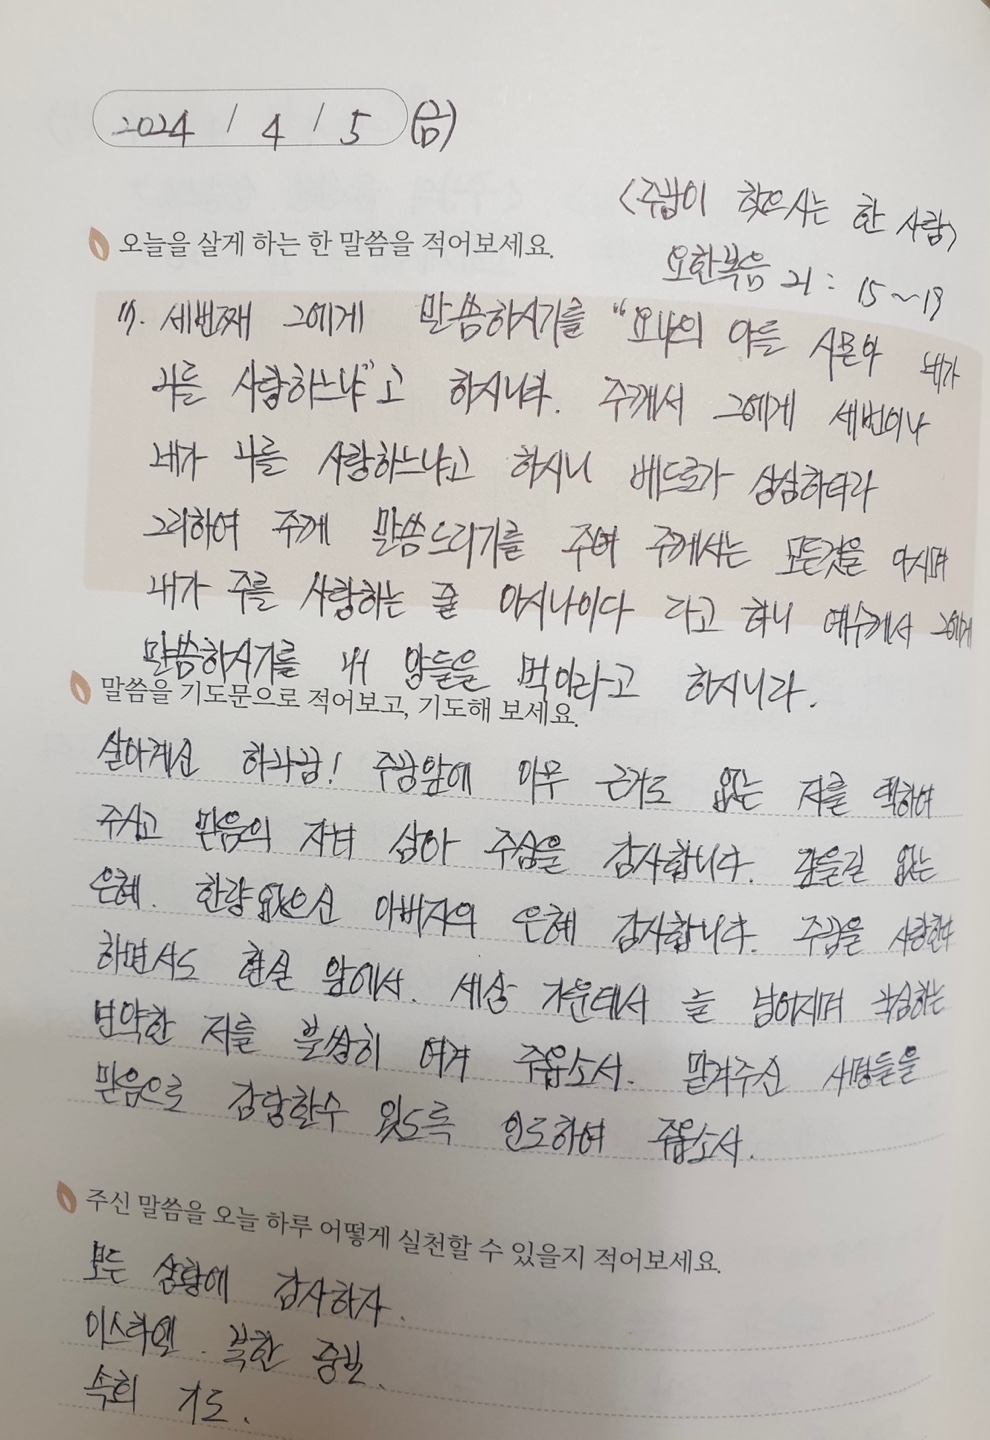 2024 / 4 / 5 (금)
<주님이 찾으시는 한 사람>
오늘을 살게 하는 한 말씀을 적어보세요.
요한복음 21 : 15~19
17. 세번째 그에게 말씀하시기를 "요나의 아들 시몬아 네가
나를 사랑하느냐"고 하시니라. 주께서 그에게 세번이나
네가 나를 사랑하느냐고 하시니 베드로가 상심하더라
그리하여 주께 말씀드리기를 주여 주께서는 모든것을 아시며
내가 주를 사랑하는 줄 아시나이다 라고 하니 예수께서 그에게
말씀하시기를 내 양들을 먹이라고 하시니라.
말씀을 기도문으로 적어보고, 기도해 보세요.
살아계신 하나님! 주님앞에 아무 근거도 없는 저를 택하여
주시고 믿음의 자녀 삼아 주심을 감사합니다. 갚을길 없는
은혜. 한량없으신 아버지의 은혜 감사합니다. 주님을 사랑한다
하면서도 현실 앞에서. 세상 가운데서 늘 넘어지며 낙심하는
연약한 저를 불쌍히 여겨 주옵소서. 맡겨주신 사명들을
믿음으로 감당할수 있도록 인도하여 주옵소서.
주신 말씀을 오늘 하루 어떻게 실천할 수 있을지 적어보세요.
모든 상황에 감사하자.
이스라엘. 북한 중보.
속회 기도.